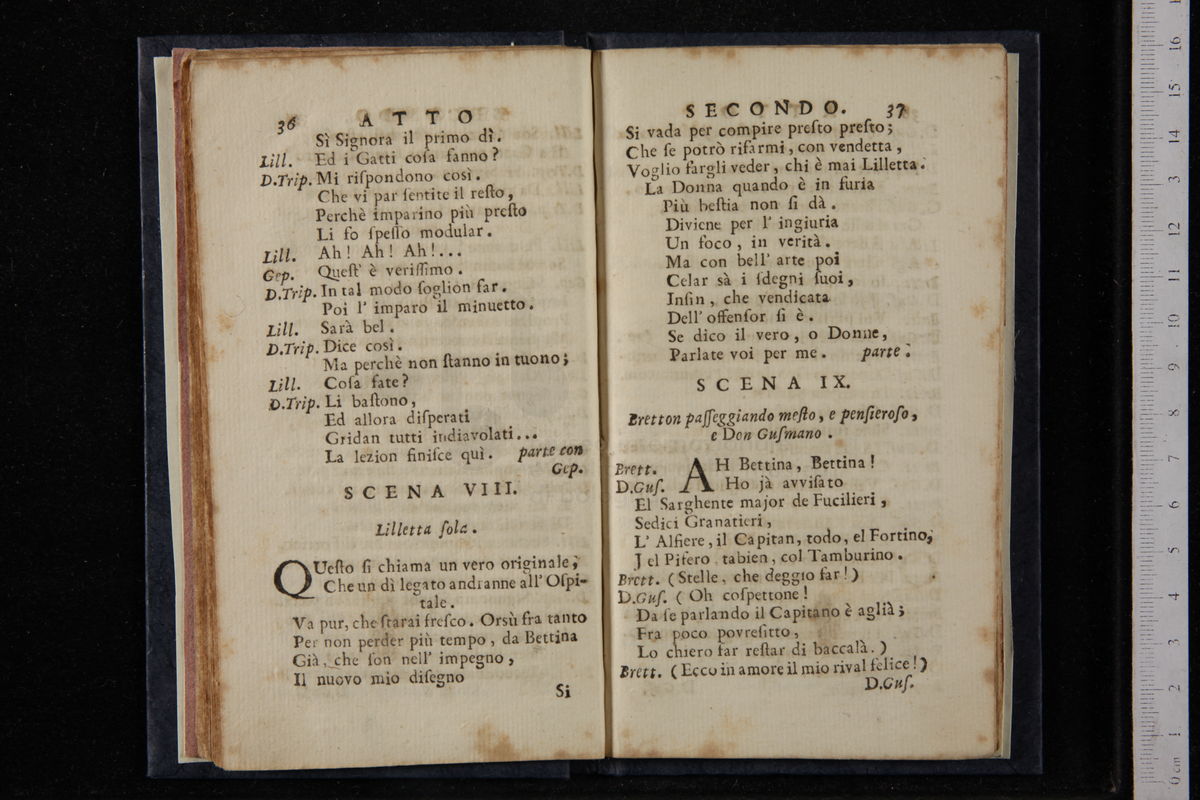 36 ATTO
Sì Signora il primo dì.
Lill. Ed i Gatti coſa fanno?
D.Trip. Mi riſpondono così.
Che vi par ſentite il reſto,
Perchè imparino più preſto
Li fo ſpeſſo modular.
Lill. Ah! Ah! Ah!...
Gep. Queſt' è veriſſimo.
D.Trip. In tal modo ſoglion far.
Poi l' imparo il minuetto.
Lill. Sarà bel.
D.Trip. Dice così.
Ma perchè non ſtanno in tuono;
Lill. Coſa fate?
D.Trip. Li baſtono,
Ed allora diſperati
Gridan tutti indiavolati...
La lezion finiſce quì. parte con
Gep.
SCENA VIII.
Lilletta ſola.
QUeſto ſi chiama un vero originale;
Che un dì legato andranne all' Oſpi-
tale.
Va pur, che ſtarai freſco. Orsù fra tanto
Per non perder più tempo, da Bettina
Già, che ſon nell' impegno,
Il nuovo mio diſegno
Si
SECONDO. 37
Si vada per compire preſto preſto;
Che ſe potrò rifarmi, con vendetta,
Voglio fargli veder, chi è mai Lilletta.
La Donna quando è in furia
Più beſtia non ſi dà.
Diviene per l' ingiuria
Un foco, in verità.
Ma con bell' arte poi
Celar sà i ſdegni ſuoi,
Inſin, che vendicata
Dell' offenſor ſi è.
Se dico il vero, o Donne,
Parlate voi per me. parte.
SCENA IX.
Bretton paſſeggiando meſto, e penſieroſo,
e Don Guſmano.
Brett. AH Bettina, Bettina!
D.Guſ. Ho jà avviſato
El Sarghente major de Fucilieri,
Sedici Granatieri,
L' Alfiere, il Capitan, todo, el Fortino,
J el Pifero, tabien, col Tamburino.
Brett. (Stelle, che deggio far!)
D.Guſ. (Oh coſpettone!
Da ſe parlando il Capitano è aglià;
Fra poco povreſitto,
Lo chiero far reſtar di baccalà.)
Brett. (Ecco in amore il mio rival felice!)
D.Guſ.
0 cm 1 2 3 4 5 6 7 8 9 10 11 12 13 14 15 16